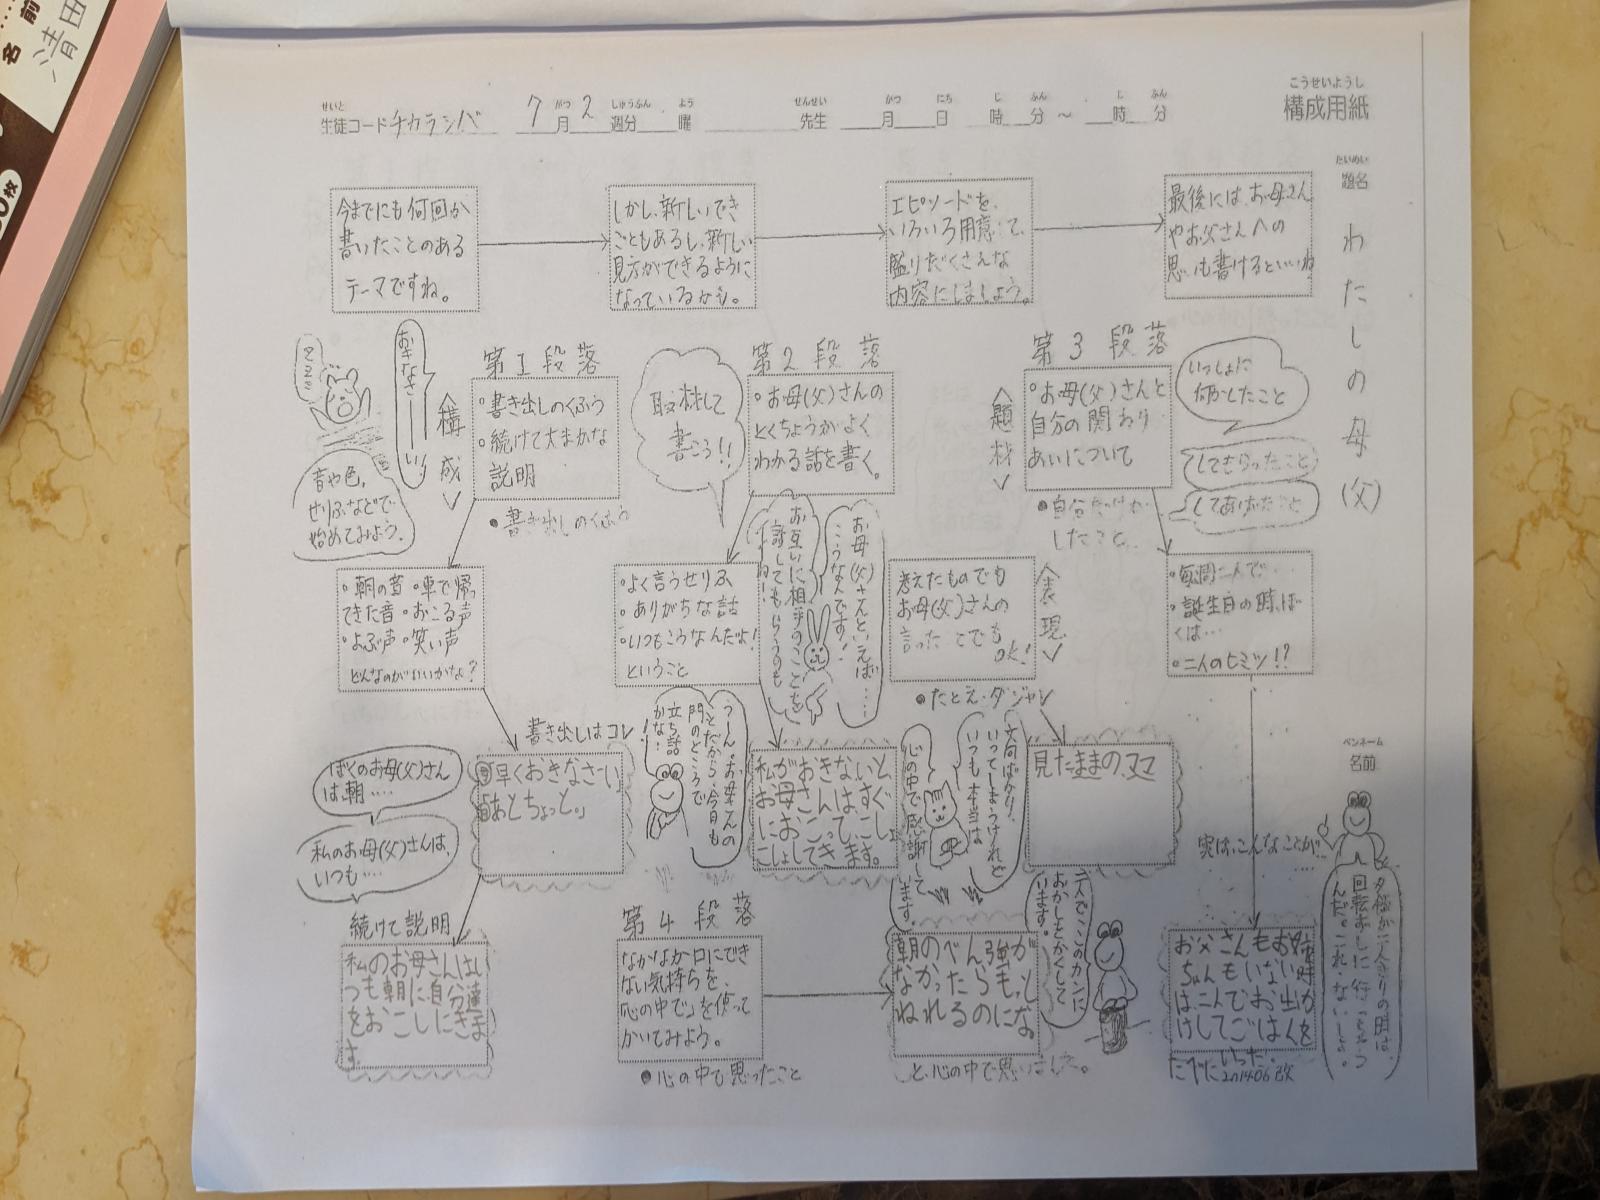 名前
清田
構成用紙
こうせいようし
生徒コード チカラシバ 7月2週分 曜 先生 月 日 時 分 ～ 時 分
せいと がつ しゅうぶん よう せんせい がつ にち じ ふん じ ふん
題名
たいめい
わたしの母(父)
名前
ペンネーム
今までにも何回か
書いたことのある
テーマですね。
しかし、新しいでき
ごともあるし、新しい
見方ができるように
なっているから。
エピソードを、
いろいろ用意して、
盛りだくさんな
内容にしましょう。
最後には、お母さん
やお父さんへの
思いも書けるといいね
〈構成〉
おきなさーい
第1段落
・書き出しのくふう
・続けて大まかな
説明
●書き出しのくふう
音や色、
せりふなどで
始めてみよう。
取材して
書こう!!
第2段落
・お母(父)さんの
とくちょうがよく
わかる話を書く。
〈題材〉
第3段落
・お母(父)さんと
自分の関わり
あいについて
いっしょに
何かしたこと
してもらったこと
してあげたこと
●自分だけが
したこと
・朝の音・車で帰っ
てきた音・おこる声
・よぶ声・笑い声
どんなのがいいかな?
・よく言うせりふ
・ありがちな話
・いつもこうなんだよ!
ということ
お互いに相手のことを
話してもらうのも
いいね!
お母(父)さんといえば……
こうなんです!
考えたものでも
お母(父)さんの
言ったことでも
OK!
〈表現〉
●たとえ・ダジャレ
・毎週二人で…
・誕生日の時、ぼ
くは…
・二人のヒミツ!?
書き出しはコレ!
ぼくのお母(父)さん
は朝……
私のお母(父)さんは、
いつも……
「早くおきなさーい」
「あとちょっと。」
うーん。お母さんの
ことだから、今日も
門のところで
立ち話
かな…
私がおきないと、
お母さんはすぐ
におこってこし
ょこしょしてきます。
文句ばかり
いってしまうけれど
いつも本当は
心の中で感謝して
います。
見たままのママ
実は、こんなことが…
夕後が二人きりの日は、
回転ずしに行って
んだ。これ、ないしょ。
続けて説明
私のお母さんはい
つも朝に自分達
をおこしにきま
す。
第4段落
なかなか口にでき
ない気持ちを、
「心の中で」を使って
かいてみよう。
●心の中で思ったこと
朝のべん強が
なかったらもっと
ねれるのにな。
と、心の中で思いました。
二人でこのカンに
おかしをかくして
います。
お父さんもお姉
ちゃんもいない時
は、二人でお出か
けしてごはんを
たべにいった。
2014.06改